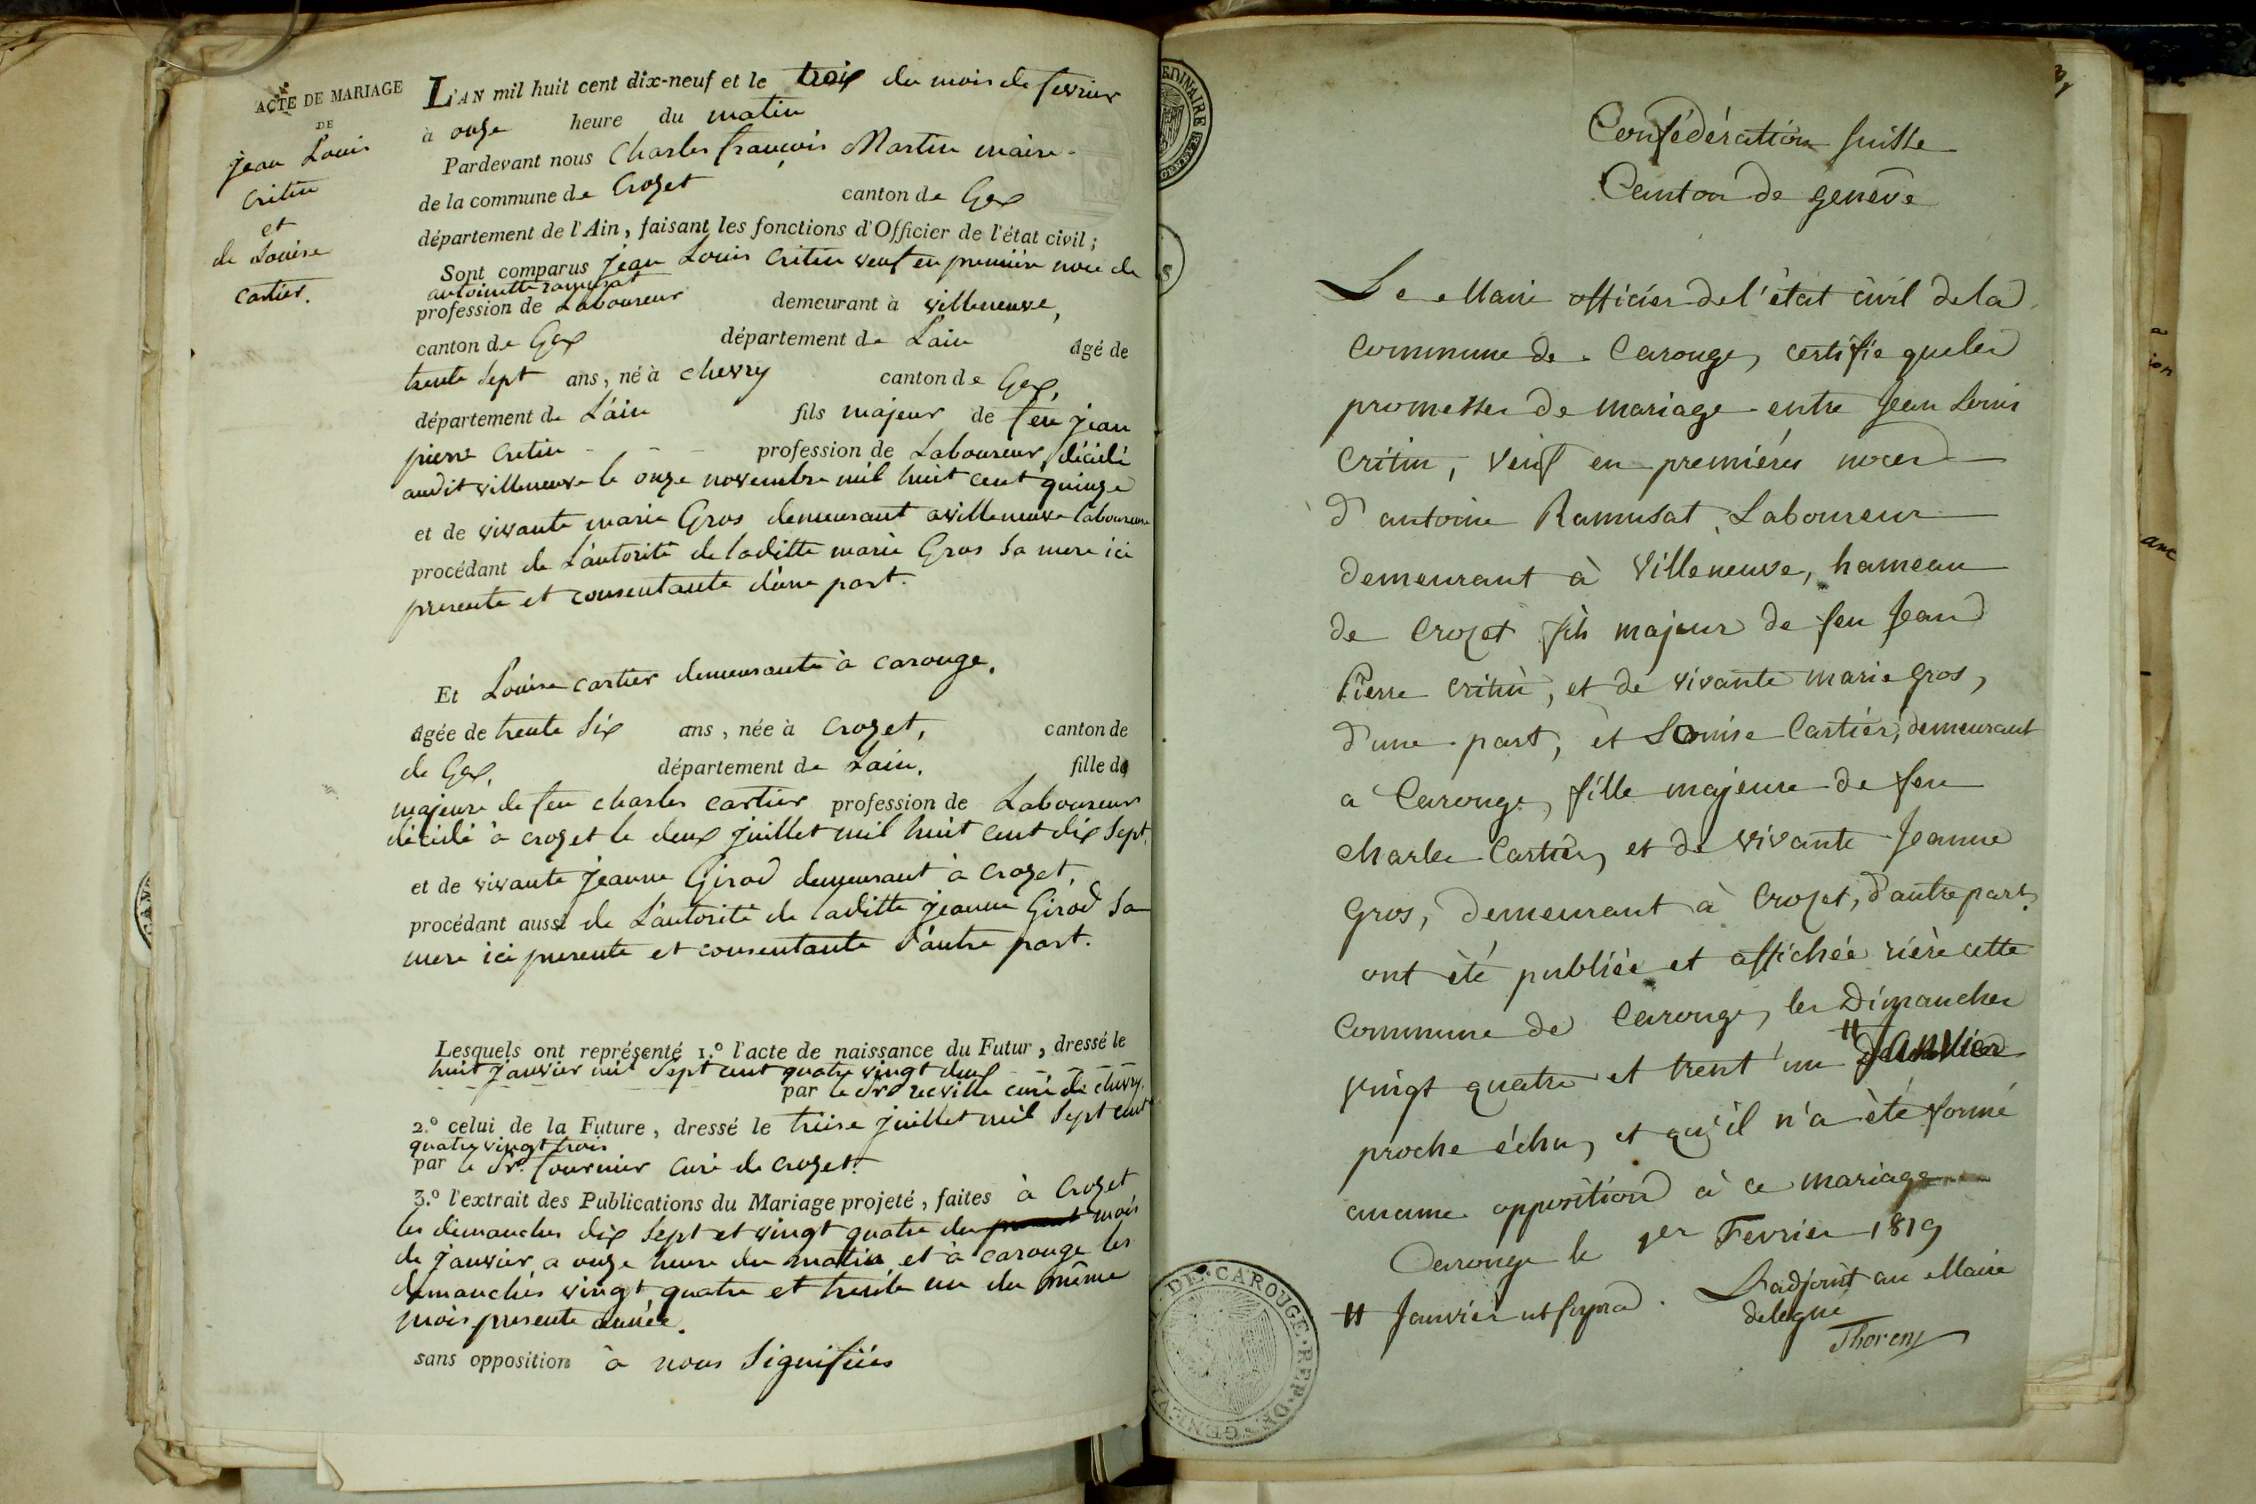 ACTE DE MARIAGE
DE
jean Louis
critin
et
de Louise
cartier.
L'AN mil huit cent dix-neuf et le trois du mois de fevrier
à onze heure du matin
Pardevant nous Charles françois Martin maire
de la commune de Crozet canton de Gex
département de l'Ain, faisant les fonctions d'Officier de l'état civil;
Sont comparus jean Louis Critin veuf en premiere noce de
antoinette ramusat
profession de Laboureur demeurant à villeneuve,
canton de Gex département de Lain âgé de
trente sept ans, né à chevry canton de Gex,
département de L'ain fils majeur de feu jean
pierre Critin - - - profession de Laboureur, décédé
audit villeneuve le onze novembre mil huit cent quinze
et de vivante marie Gros demeurant a villeneuve laboureuse
procédant de L'autorité de laditte marie Gros sa mere ici
presente et consentante d'une part.
Et Louise cartier demeurante à carouge.
âgée de trente six ans, née à crozet, canton de
de Gex, département de Lain, fille de
majeure de feu charles cartier profession de Laboureur
décédé à crozet le deux juillet mil huit cent dix sept.
et de vivante jeanne Girod demeurant à crozet,
procédant aussi de L'autorité de laditte jeanne Girod sa
mere ici presente et consentante d'autre part.
Lesquels ont représenté 1.º l'acte de naissance du Futur, dressé le
huit janvier mil sept cent quatre vingt deux
par le Sr curé de chevry.
2.º celui de la Future, dressé le treise juillet mil sept cent
quatre vingt trois
par le Sr. fournier curé de crozet.
3.º l'extrait des Publications du Mariage projeté, faites à Crozet
les dimanches dix sept et vingt quatre du present mois
de janvier, a onze heure du matin, et à carouge les
dimanches vingt quatre et trente un du même
mois presente année.
sans opposition à nous Signifiées
Confédération suisse
Canton de genève
Le Maire officier de l'état civil de la
commune de Carouge, certifie que les
promesses de mariage entre Jean Louis
Critin, veuf en premières noces
d'antoine Ramusat, Laboureur
demeurant à Villeneuve, hameau
de Crozet fils majeur de feu Jean
Pierre critin, et de vivante marie gros,
d'une part, et Louise Cartier, demeurant
a Carouge, fille majeure de feu
charles Cartier, et de vivante Jeanne
gros, demeurant à Crozet, d'autre part,
ont été publiée et affichée rière cette
Commune de Carouge, les Dimanches
vingt quatre et trent'un # janvier
proche échu, et qu'il n'a été formé
aucune opposition à ce mariage
Carouge le 1er Fevrier 1819
# Janvier ut supra. L'adjoint au Maire
delegué
Thorens
DE·CAROUGE·REP·DE·GENEVE